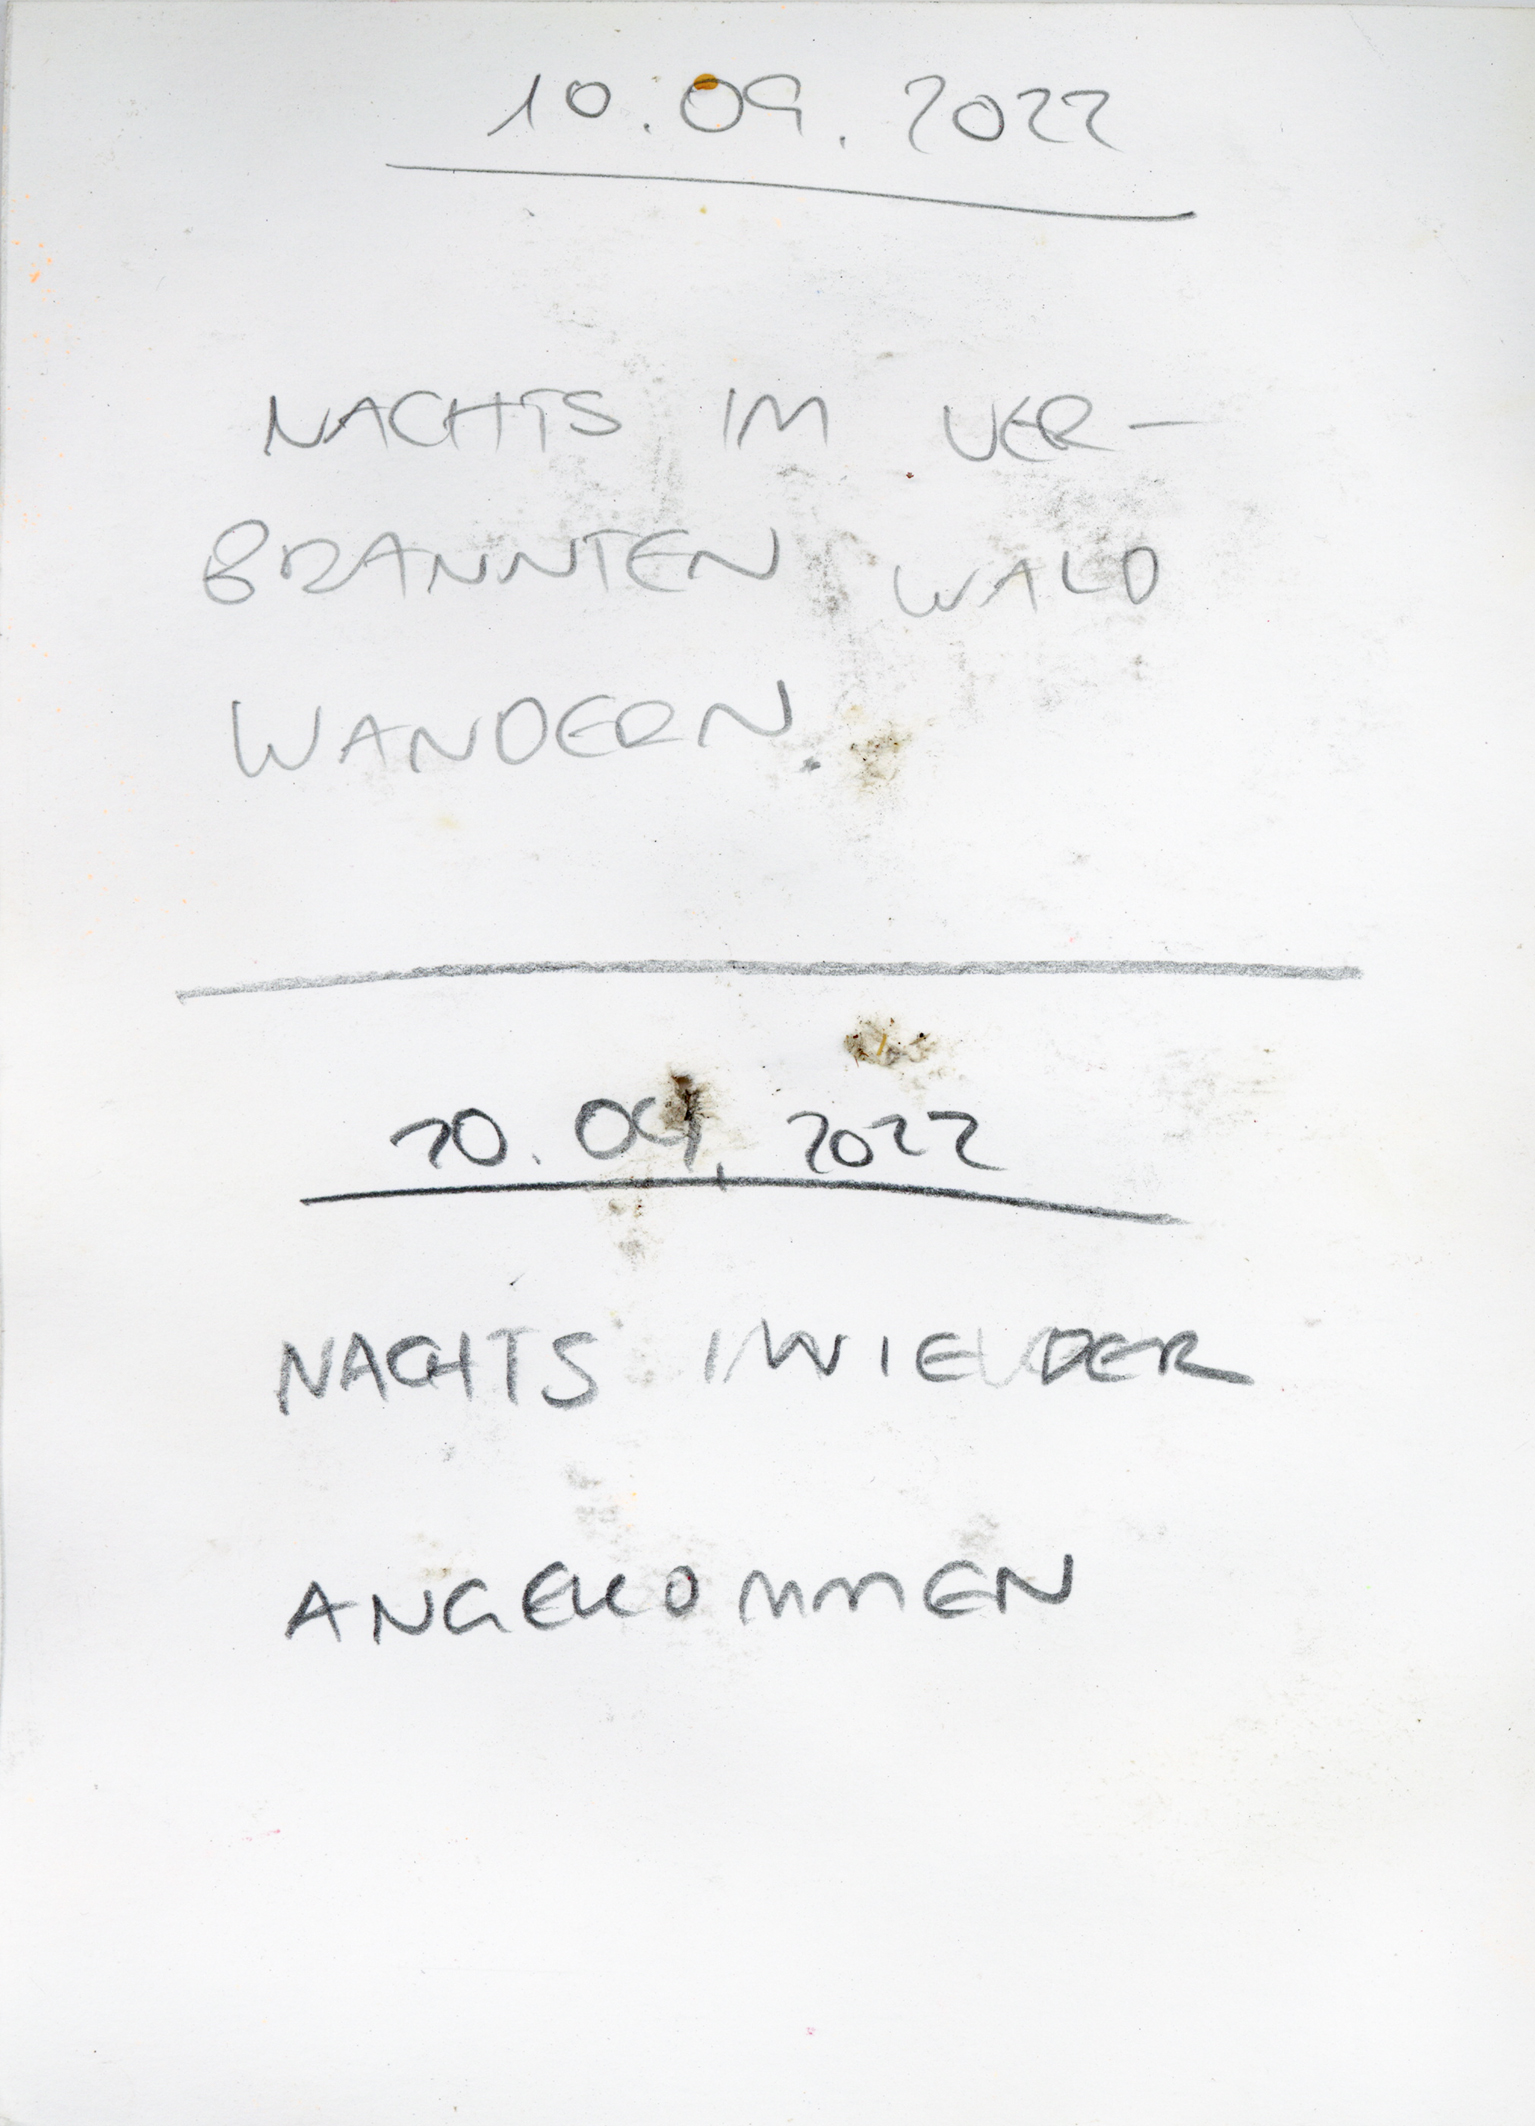 10.09.2022
NACHTS IM VER-
BRANNTEN WALD
WANDERN.
10.09.2022
NACHTS WIEDER
ANGEKOMMEN